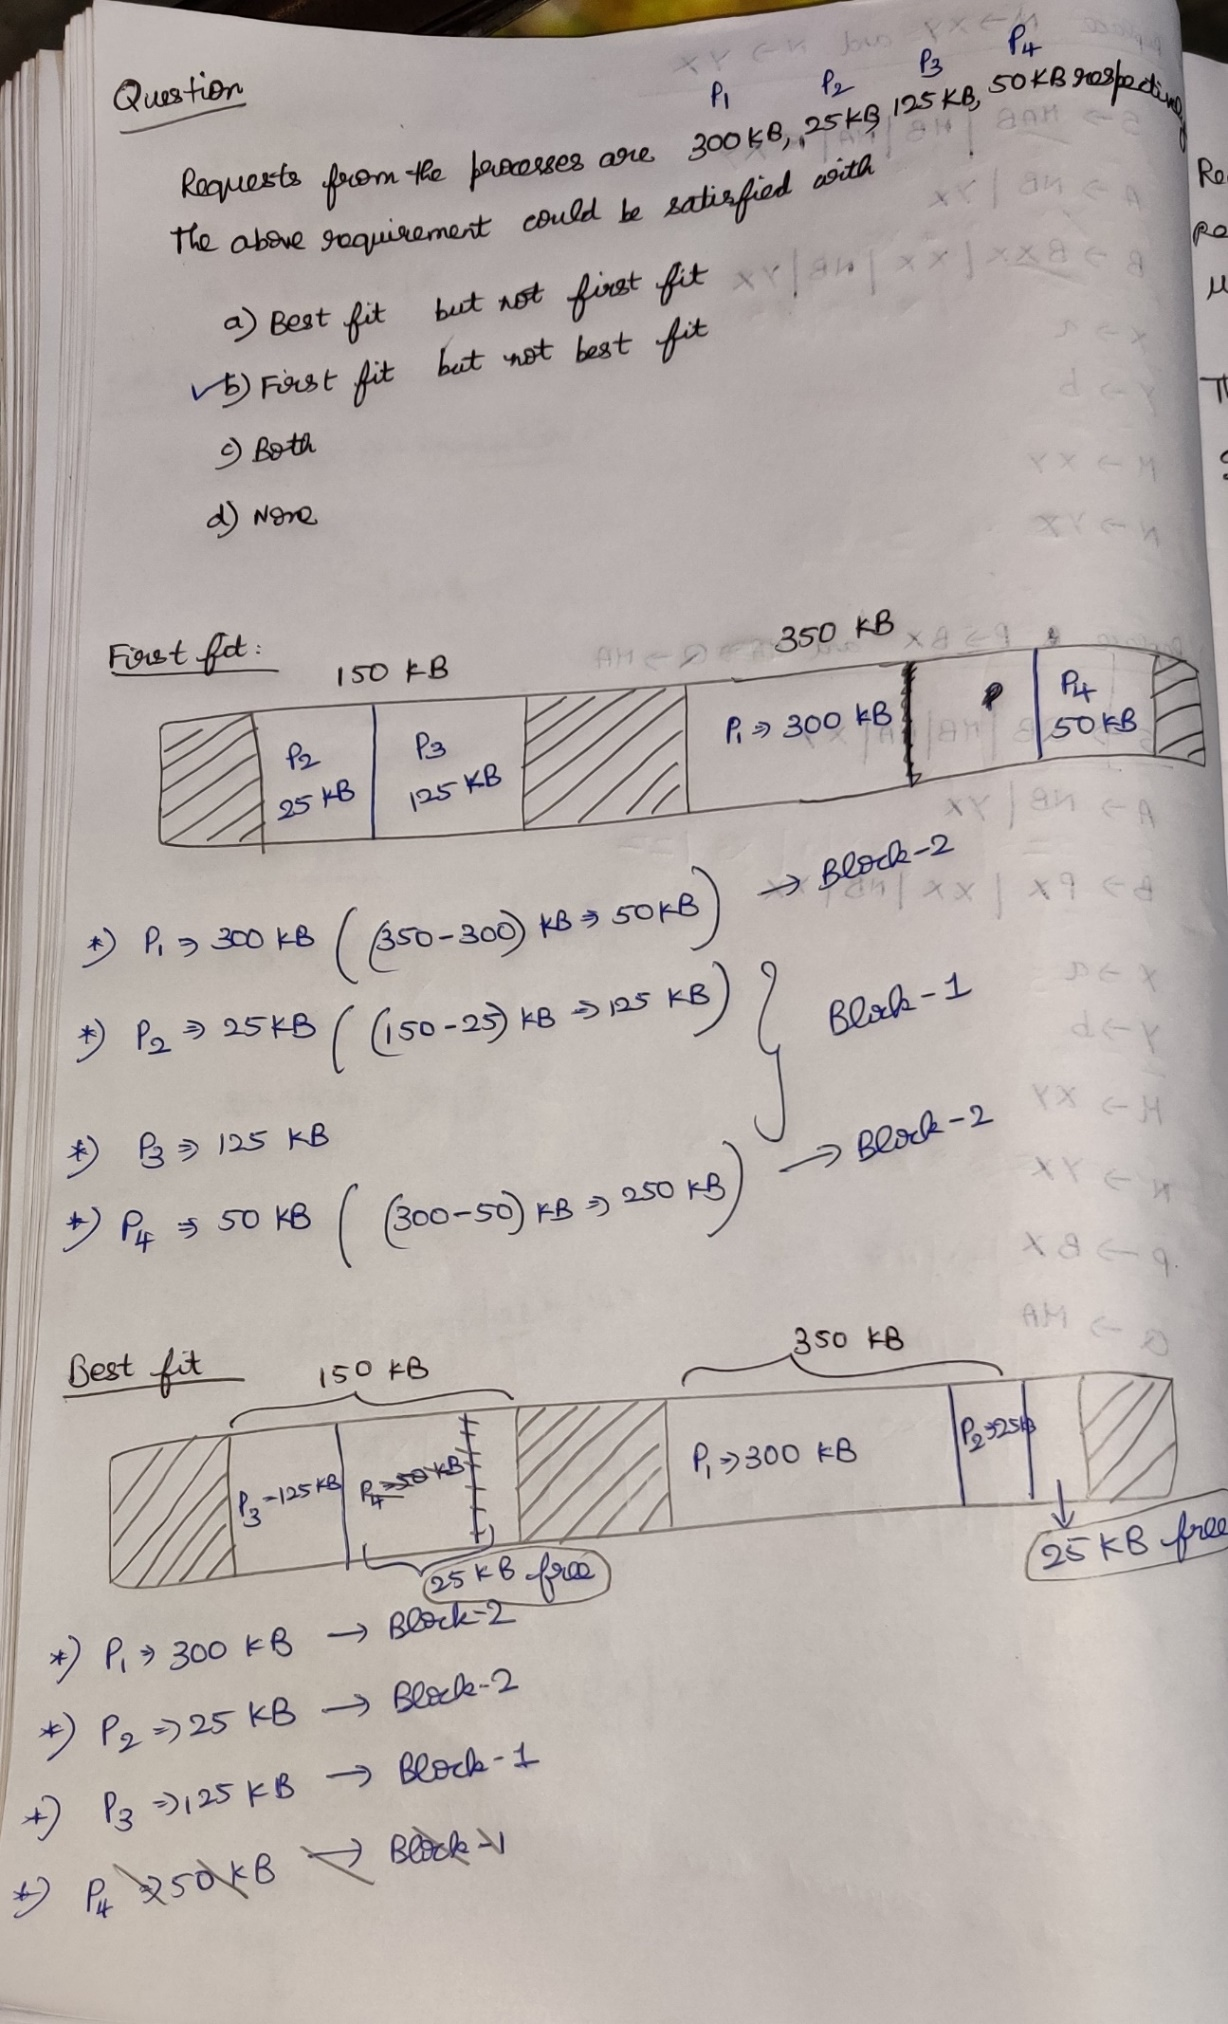 Question
P1 P2 P3 P4
Requests from the processes are 300 KB, 25 KB, 125 KB, 50 KB
The above requirement could be satisfied with
a) Best fit but not first fit
✓b) First fit but not best fit
c) Both
d) None
First fit:
150 KB 350 KB
P2 P3 P1 ⇒ 300 KB P4
25 KB 125 KB 50 KB
*) P1 ⇒ 300 KB ((350-300) KB ⇒ 50 KB) → Block-2
*) P2 ⇒ 25 KB ((150-25) KB ⇒ 125 KB) } Block-1
*) P3 ⇒ 125 KB
*) P4 ⇒ 50 KB ((300-50) KB ⇒ 250 KB) → Block-2
Best fit
150 KB 350 KB
P3 - 125 KB P4 ⇒ 50 KB P1 ⇒ 300 KB P2 ⇒ 25KB
25 KB free 25 KB free
*) P1 ⇒ 300 KB → Block-2
*) P2 ⇒ 25 KB → Block-2
*) P3 ⇒ 125 KB → Block-1
*) P4 ⇒ 50 KB → Block-1